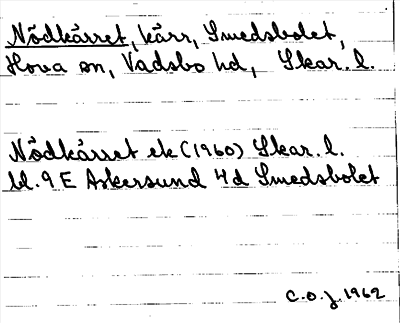 Nödkärret, kärr, Smedsbolet,
Hova sn, Vadsbo hd, Skar. l.
Nödkärret ek (1960) Skar. l.
bl. 9 E Askersund 4d Smedsbolet
C.O.J. 1962